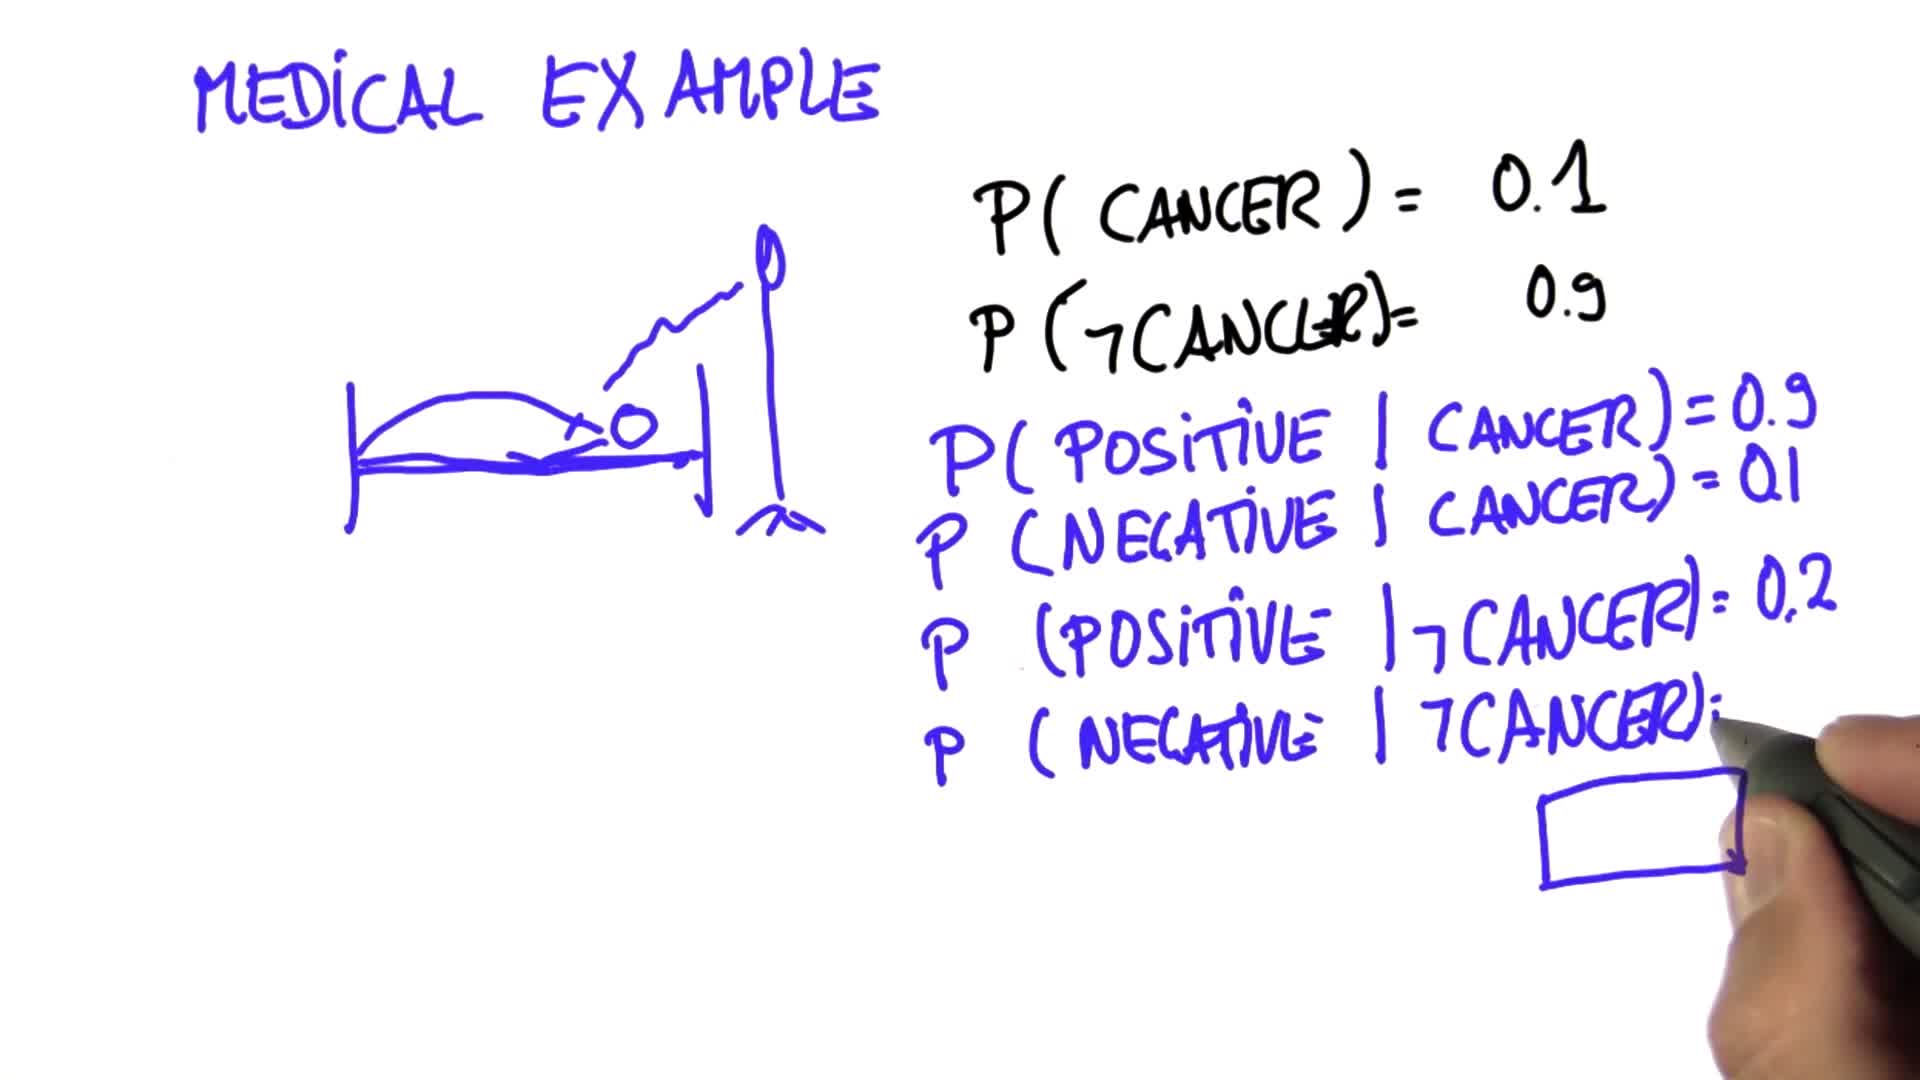 MEDICAL EXAMPLE
P( CANCER ) = 0.1
P (¬CANCER)= 0.9
P( POSITIVE | CANCER) = 0.9
P (NEGATIVE | CANCER) = 0.1
P (POSITIVE | ¬CANCER) = 0.2
P (NEGATIVE | ¬CANCER)=